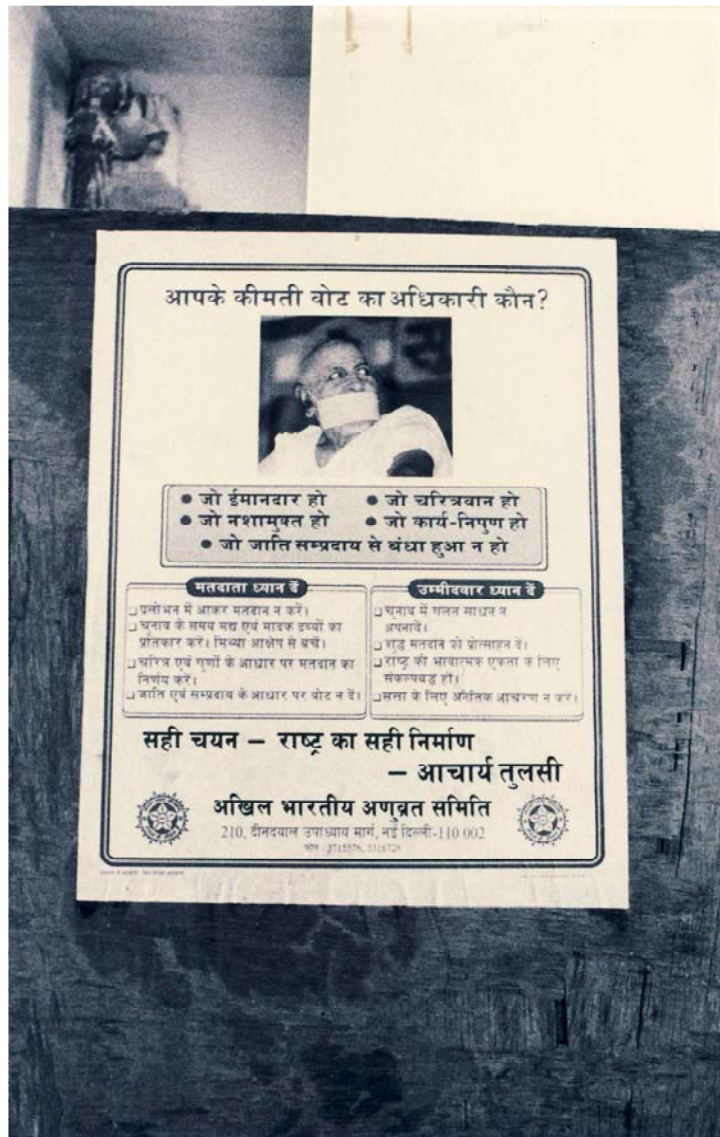 आपके कीमती वोट का अधिकारी कौन?
● जो ईमानदार हो
● जो चरित्रवान हो
● जो नशामुक्त हो
● जो कार्य-निपुण हो
● जो जाति सम्प्रदाय से बंधा हुआ न हो
मतदाता ध्यान दें
❏ प्रलोभन में आकर मतदान न करें।
❏ चुनाव के समय मद्य एवं मादक द्रव्यों का
प्रतिकार करें। मिथ्या आक्षेप से बचें।
❏ चरित्र एवं गुणों के आधार पर मतदान का
निर्णय करें।
❏ जाति एवं सम्प्रदाय के आधार पर वोट न दें।
उम्मीदवार ध्यान दें
❏ चुनाव में गलत साधन न
अपनायें।
❏ शुद्ध मतदान को प्रोत्साहन दें।
❏ राष्ट्र की भावात्मक एकता के लिए
संकल्पबद्ध हों।
❏ सत्ता के लिए अनैतिक आचरण न करें।
सही चयन – राष्ट्र का सही निर्माण
– आचार्य तुलसी
अखिल भारतीय अणुव्रत समिति
210, दीनदयाल उपाध्याय मार्ग, नई दिल्ली-110 002
फोन :